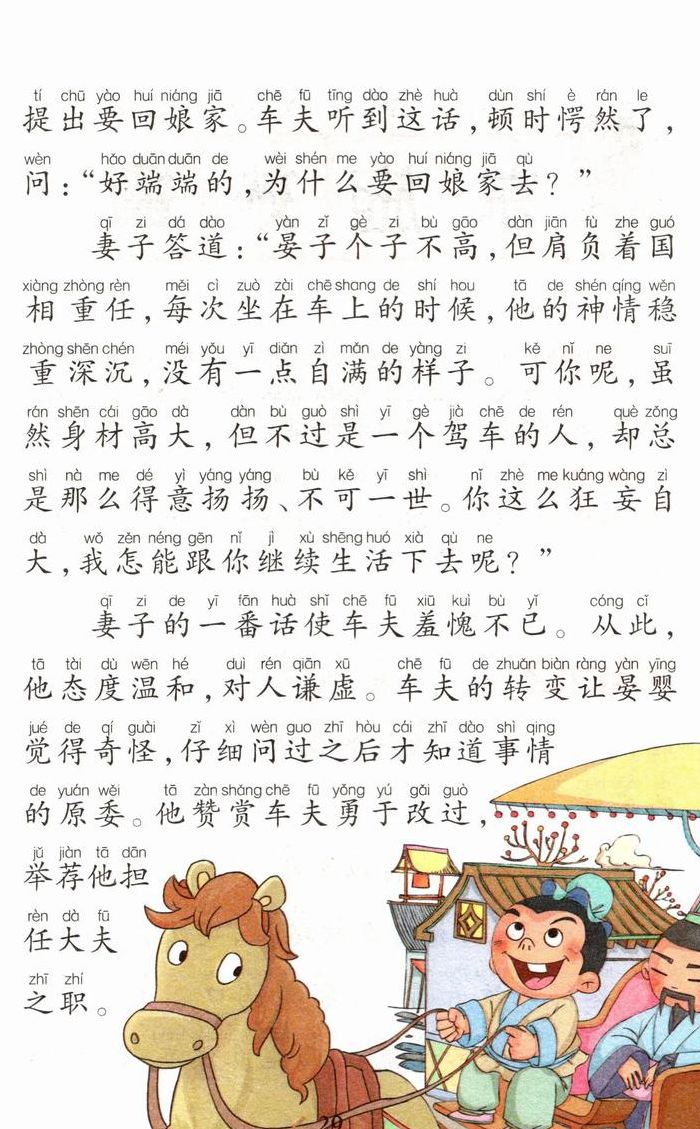 tí chū yào huí niáng jiā chē fū tīng dào zhè huà dùn shí è rán le
提出要回娘家。车夫听到这话，顿时愕然了，
wèn hǎo duān duān de wèi shén me yào huí niáng jiā qù
问：“好端端的，为什么要回娘家去？”
qī zi dá dào yàn zǐ gè zi bù gāo dàn jiān fù zhe guó
妻子答道：“晏子个子不高，但肩负着国
xiàng zhòng rèn měi cì zuò zài chē shang de shí hou tā de shén qíng wěn
相重任，每次坐在车上的时候，他的神情稳
zhòng shēn chén méi yǒu yī diǎn zì mǎn de yàng zi kě nǐ ne suī
重深沉，没有一点自满的样子。可你呢，虽
rán shēn cái gāo dà dàn bù guò shì yī gè jià chē de rén què zǒng
然身材高大，但不过是一个驾车的人，却总
shì nà me dé yì yáng yáng bù kě yī shì nǐ zhè me kuáng wàng zì
是那么得意扬扬、不可一世。你这么狂妄自
dà wǒ zěn néng gēn nǐ jì xù shēng huó xià qù ne
大，我怎能跟你继续生活下去呢？”
qī zi de yī fān huà shǐ chē fū xiū kuì bù yǐ cóng cǐ
妻子的一番话使车夫羞愧不已。从此，
tā tài dù wēn hé duì rén qiān xū chē fū de zhuǎn biàn ràng yàn yīng
他态度温和，对人谦虚。车夫的转变让晏婴
jué de qí guài zǐ xì wèn guo zhī hòu cái zhī dào shì qing
觉得奇怪，仔细问过之后才知道事情
de yuán wěi tā zàn shǎng chē fū yǒng yú gǎi guò
的原委。他赞赏车夫勇于改过，
jǔ jiàn tā dān
举荐他担
rèn dà fū
任大夫
zhī zhí
之职。
29